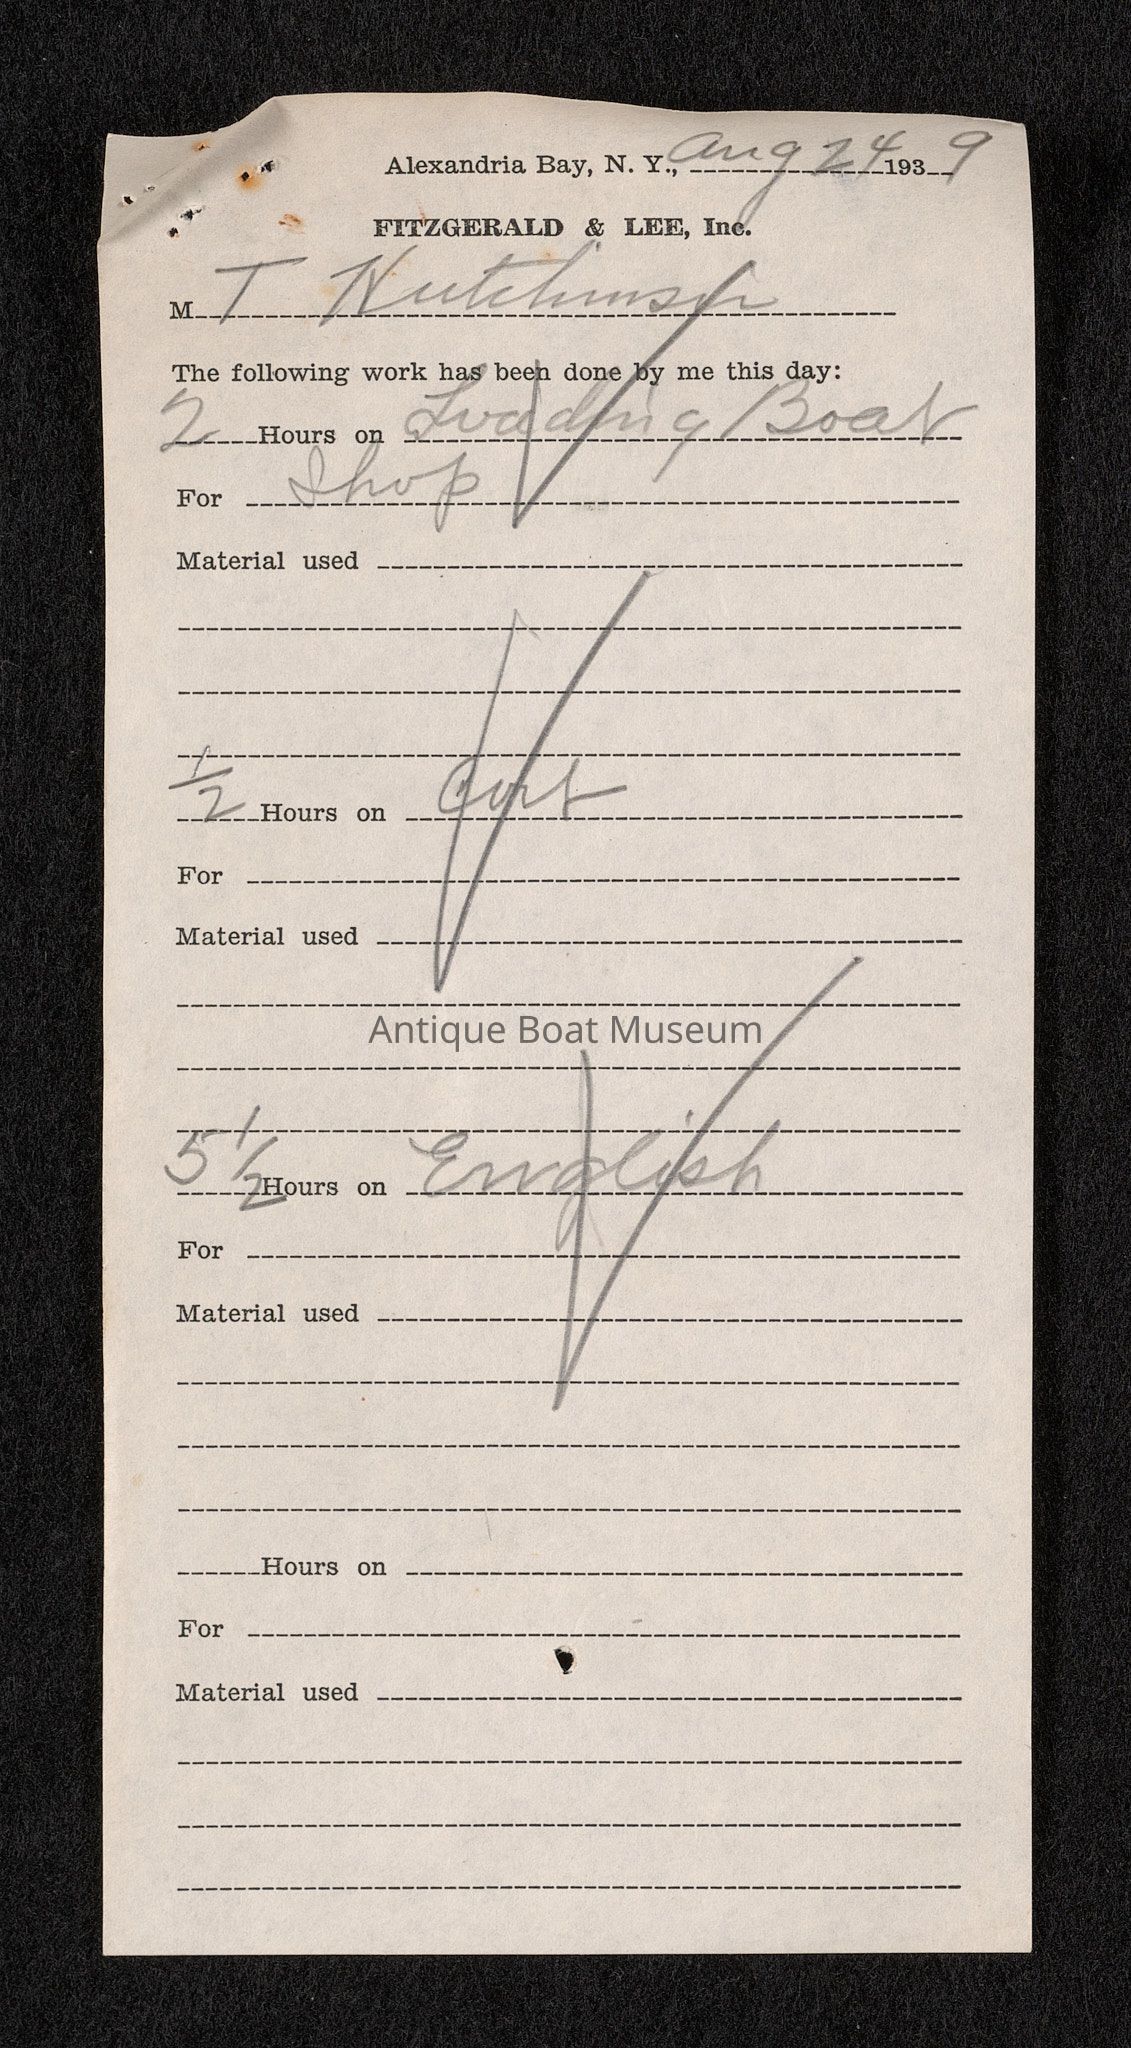 Alexandria Bay, N. Y., Aug 24 1939
FITZGERALD & LEE, Inc.
M T Hutchinson
The following work has been done by me this day:
2 Hours on Loading Boat
For Shop
Material used
1/2 Hours on
For
Material used
Antique Boat Museum
5 1/2 Hours on English
For
Material used
Hours on
For
Material used